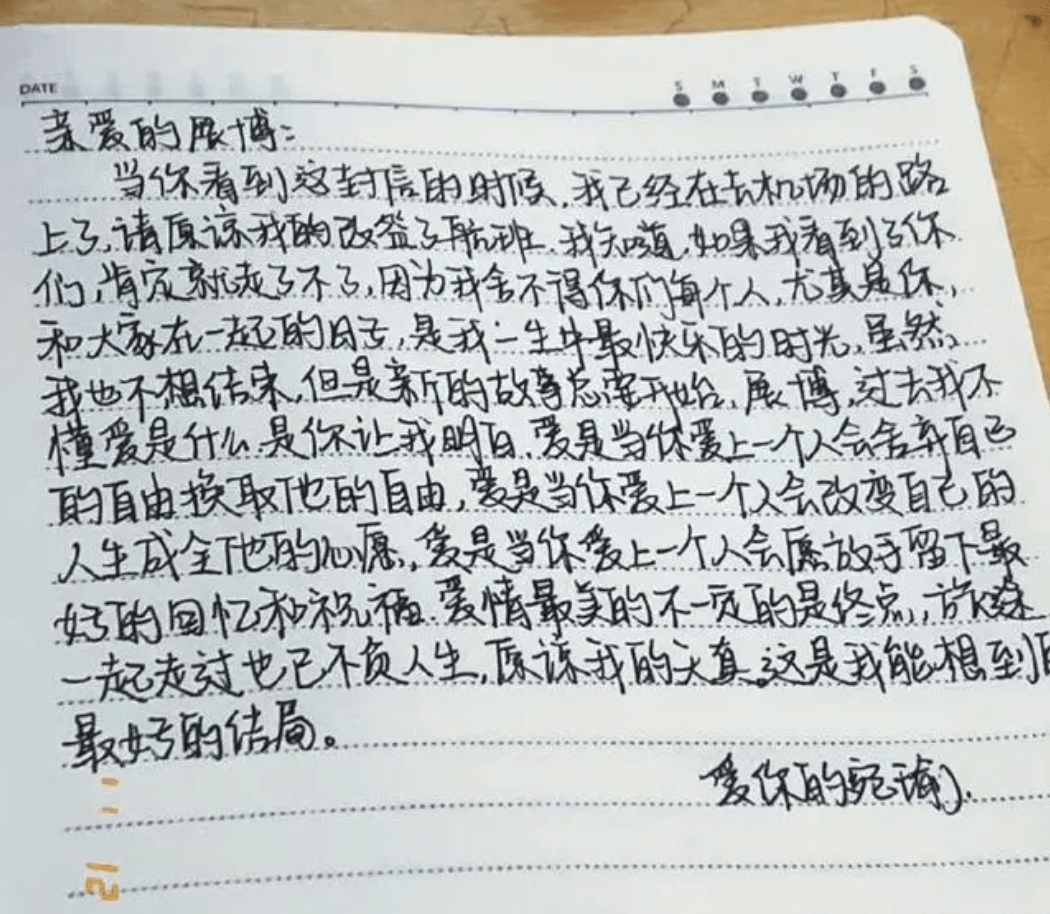 DATE
S M T W T F S
亲爱的展博：
当你看到这封信的时候，我已经在去机场的路
上了，请原谅我的改签了航班，我知道，如果我看到了你
们，肯定就走了不了，因为我舍不得你们每个人，尤其是你，
和大家在一起的日子，是我一生中最快乐的时光，虽然，
我也不想结束，但是新的故事总要开始，展博，过去我不
懂爱是什么，是你让我明白，爱是当你爱上一个人会舍弃自己
的自由换取他的自由，爱是当你爱上一个人会改变自己的
人生成全他的心愿，爱是当你爱上一个人会愿放手留下最
好的回忆和祝福，爱情最美的不一定的是终点，旅途
一起走过也已不负人生，原谅我的天真，这是我能想到的
最好的结局。
爱你的宛瑜，
11 12